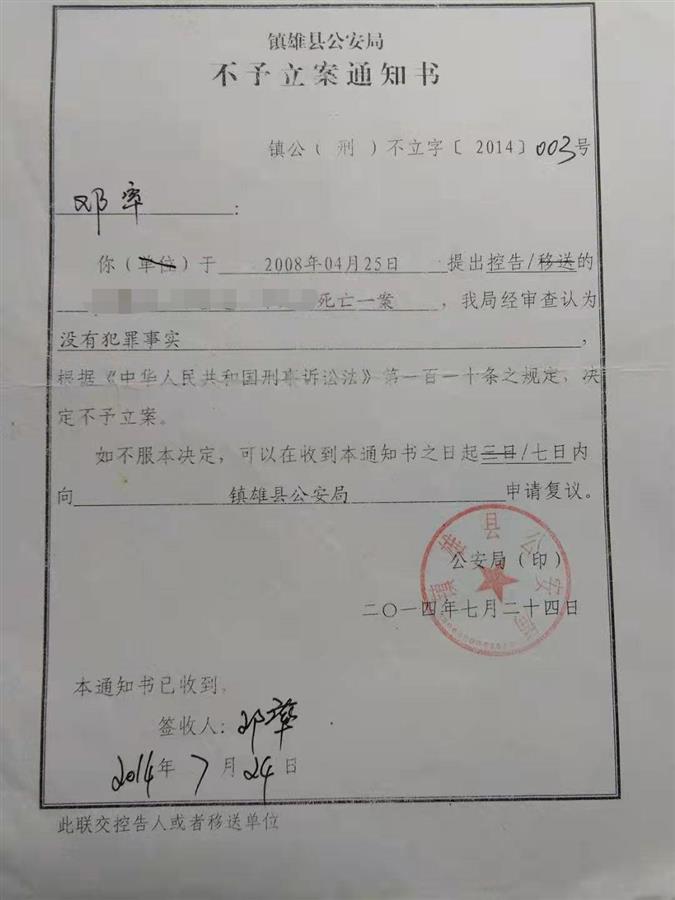 镇雄县公安局
不予立案通知书
镇公（刑）不立字〔2014〕003号
邓率：
你（单位）于2008年04月25日提出控告/移送的
死亡一案，我局经审查认为
没有犯罪事实，
根据《中华人民共和国刑事诉讼法》第一百一十条之规定，决
定不予立案。
如不服本决定，可以在收到本通知书之日起三日/七日内
向镇雄县公安局申请复议。
镇雄县公安局
公安局（印）
二〇一四年七月二十四日
本通知书已收到。
签收人：邓率
2014年7月24日
此联交控告人或者移送单位